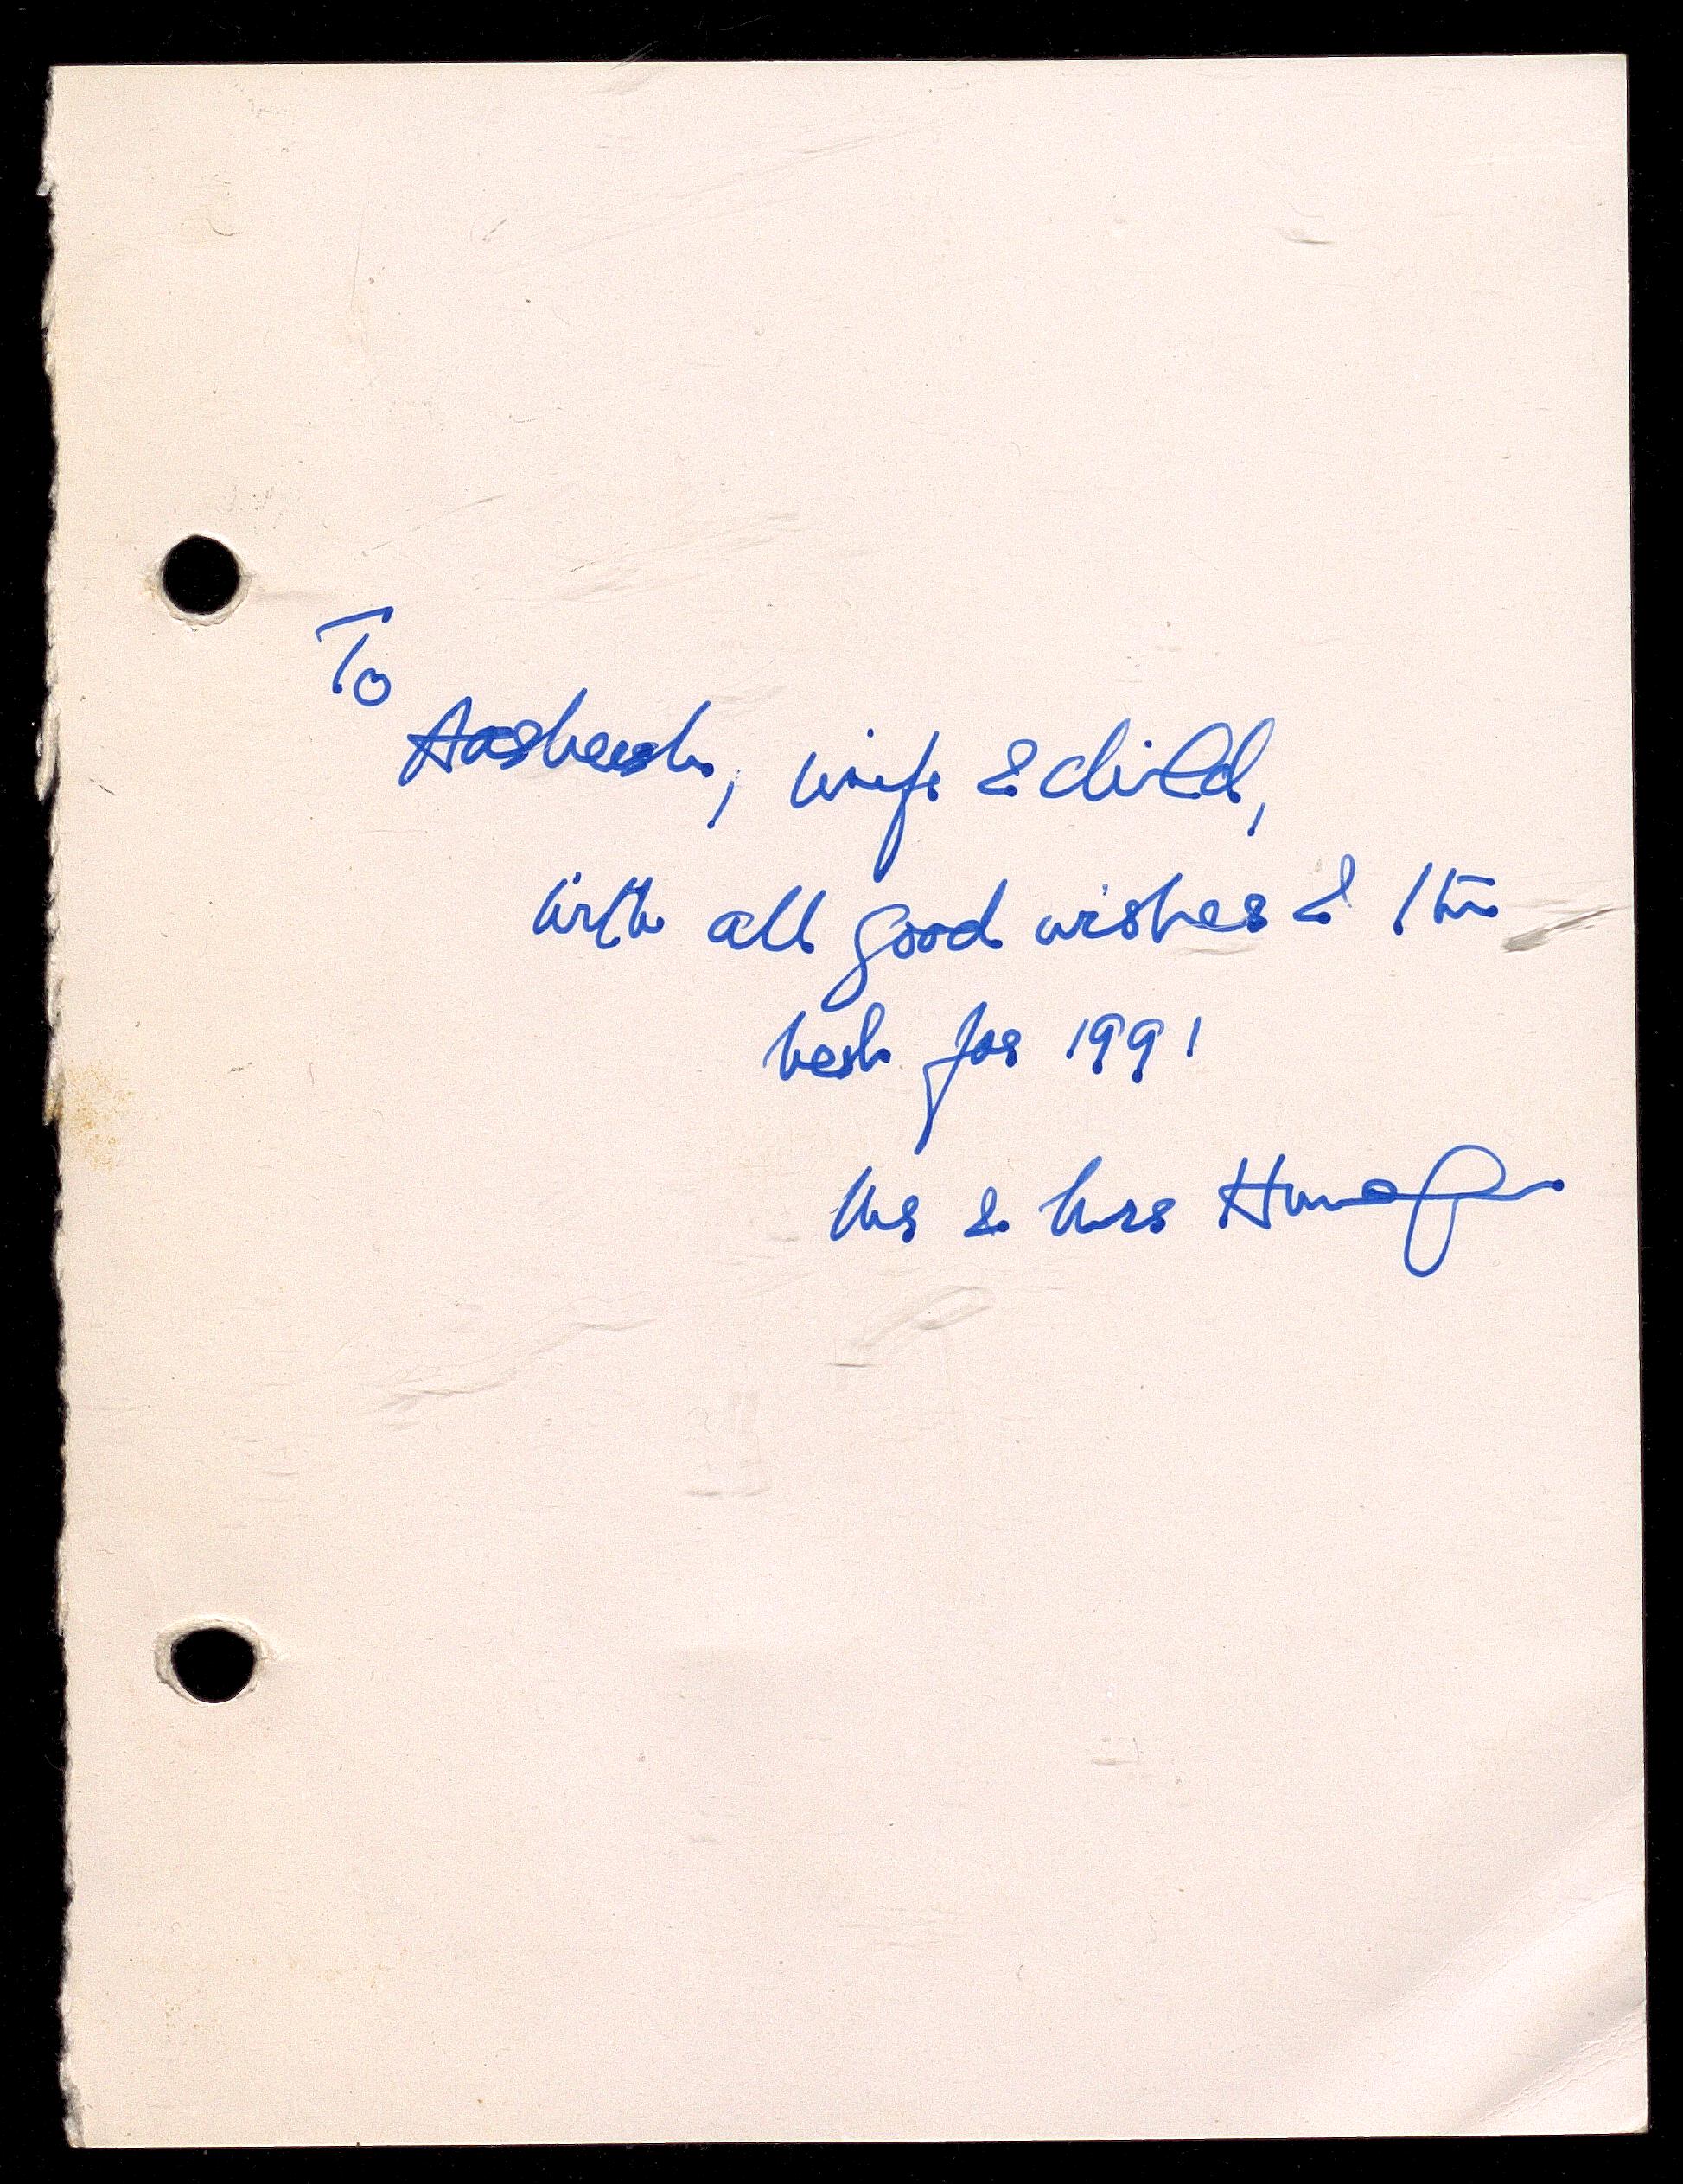 To
Aasheesh, wife & child,
with all good wishes & the
best for 1991
Mr & Mrs